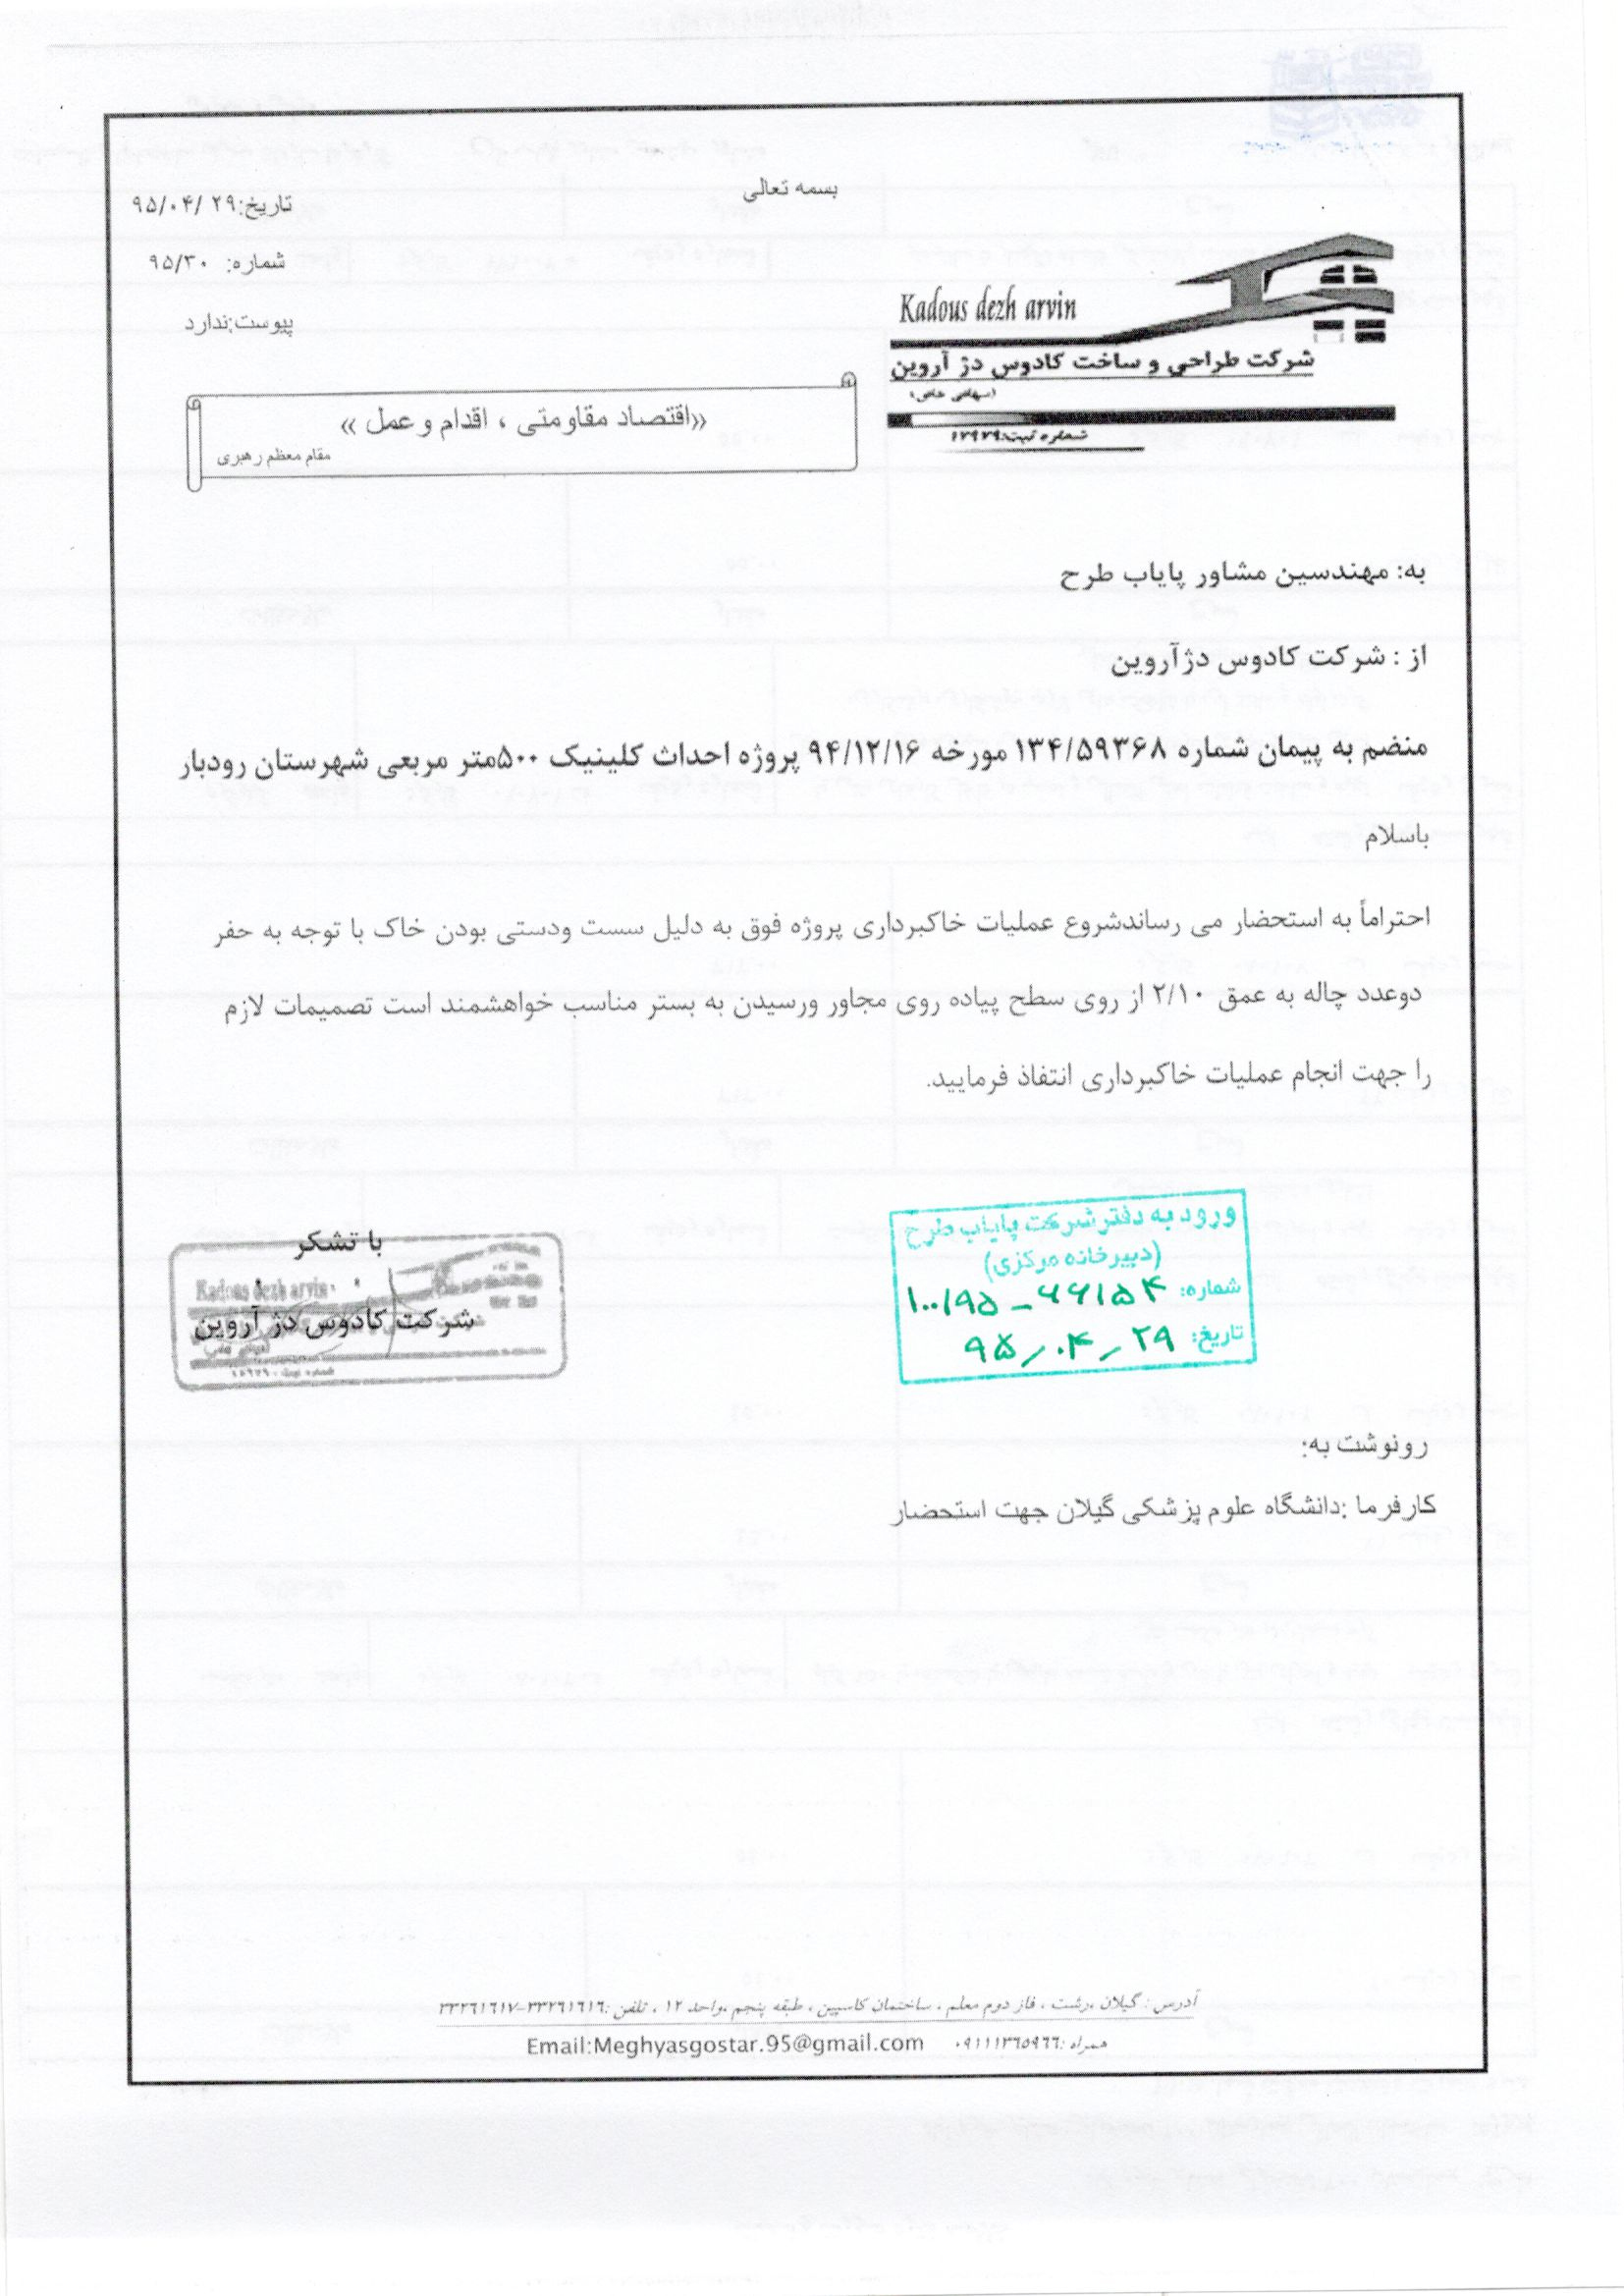 بسمه تعالی
تاریخ:۲۹ /۹۵/۰۴
شماره: ۹۵/۳۰
پیوست:ندارد
Kadous dezh arvin
شرکت طراحی و ساخت کادوس دژ آروین
(سهامی خاص)
«اقتصاد مقاومتی ، اقدام و عمل »
مقام معظم رهبری
به: مهندسین مشاور پایاب طرح
از : شرکت کادوس دژآروین
منضم به پیمان شماره ۱۳۴/۵۹۳۶۸ مورخه ۹۴/۱۲/۱۶ پروژه احداث کلینیک ۵۰۰متر مربعی شهرستان رودبار
باسلام
احتراماً به استحضار می رساندشروع عملیات خاکبرداری پروژه فوق به دلیل سست ودستی بودن خاک با توجه به حفر
دوعدد چاله به عمق ۲/۱۰ از روی سطح پیاده روی مجاور ورسیدن به بستر مناسب خواهشمند است تصمیمات لازم
را جهت انجام عملیات خاکبرداری انتفاذ فرمایید.
ورود به دفتر شرکت پایاب طرح
(دبیرخانه مرکزی)
شماره: ۱۰۰/۹۵ – ۶۶۱۵۴
تاریخ: ۲۹ / ۰۴ / ۹۵
با تشکر
Kadous dezh arvin
شرکت کادوس دژ آروین
رونوشت به:
کارفرما :دانشگاه علوم پزشکی گیلان جهت استحضار
آدرس : گیلان ،رشت ، فاز دوم معلم ، ساختمان کاسپین ، طبقه پنجم ،واحد ۱۲ ، تلفن :۳۳۲۶۱۶۱۶-۳۳۲۶۱۶۱۷
همراه :۰۹۱۱۱۳۶۵۹۶۶ Email:Meghyasgostar.95@gmail.com